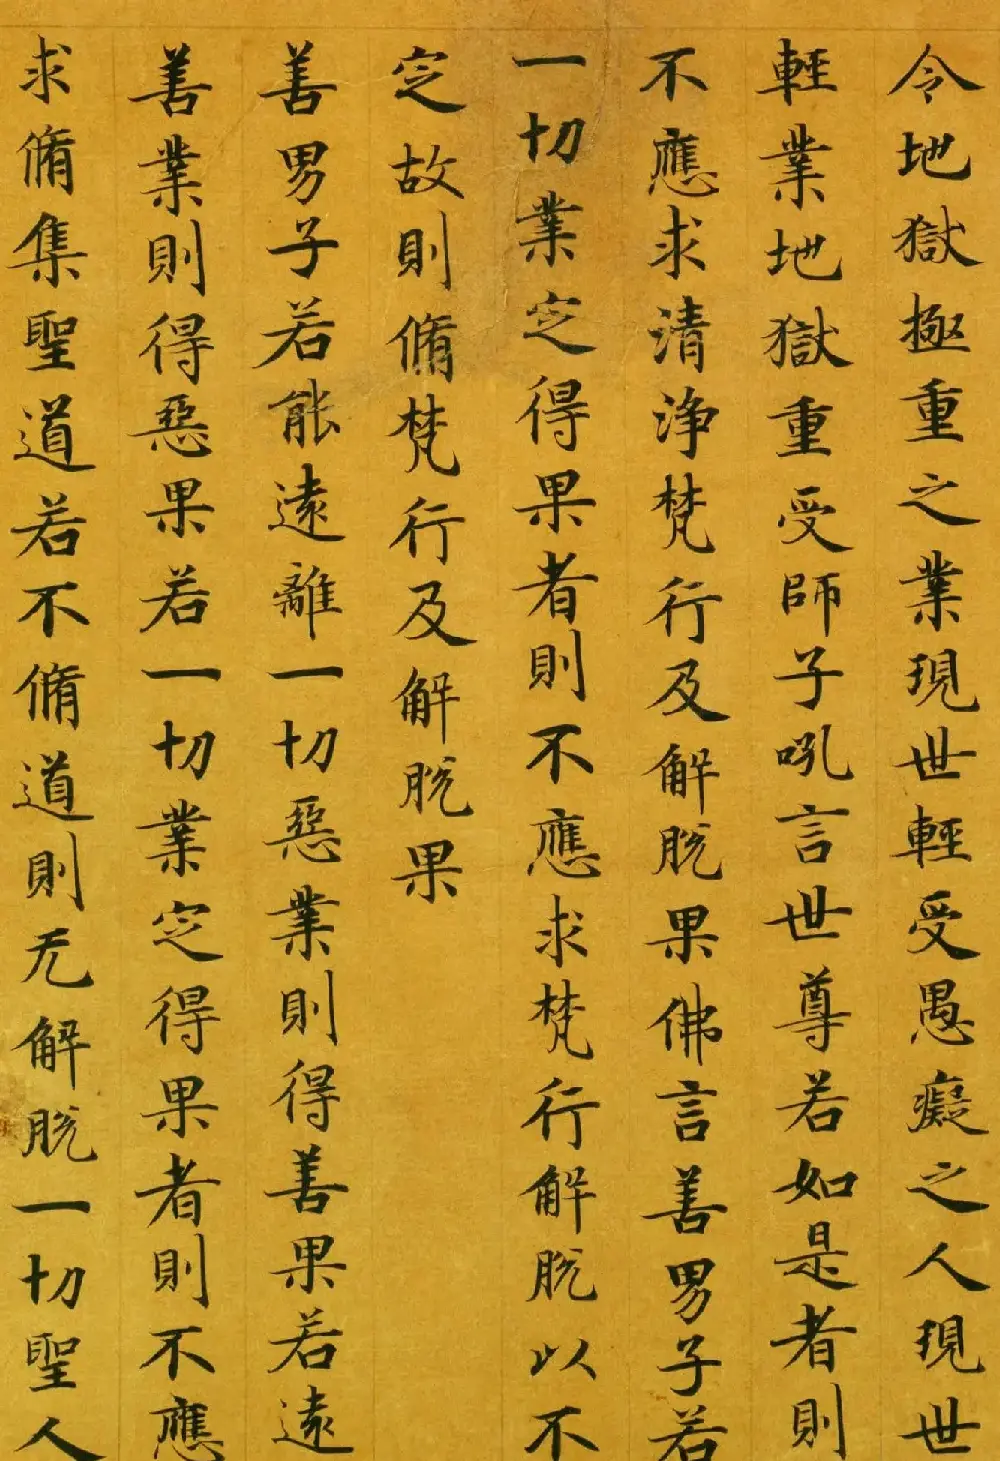 令地獄極重之業現世輕受愚癡之人現世
輕業地獄重受師子吼言世尊若如是者則
不應求清淨梵行及解脫果佛言善男子若
一切業定得果者則不應求梵行解脫以不
定故則脩梵行及解脫果
善男子若能遠離一切惡業則得善果若遠
善業則得惡果若一切業定得果者則不應
求脩集聖道若不脩道則无解脫一切聖人